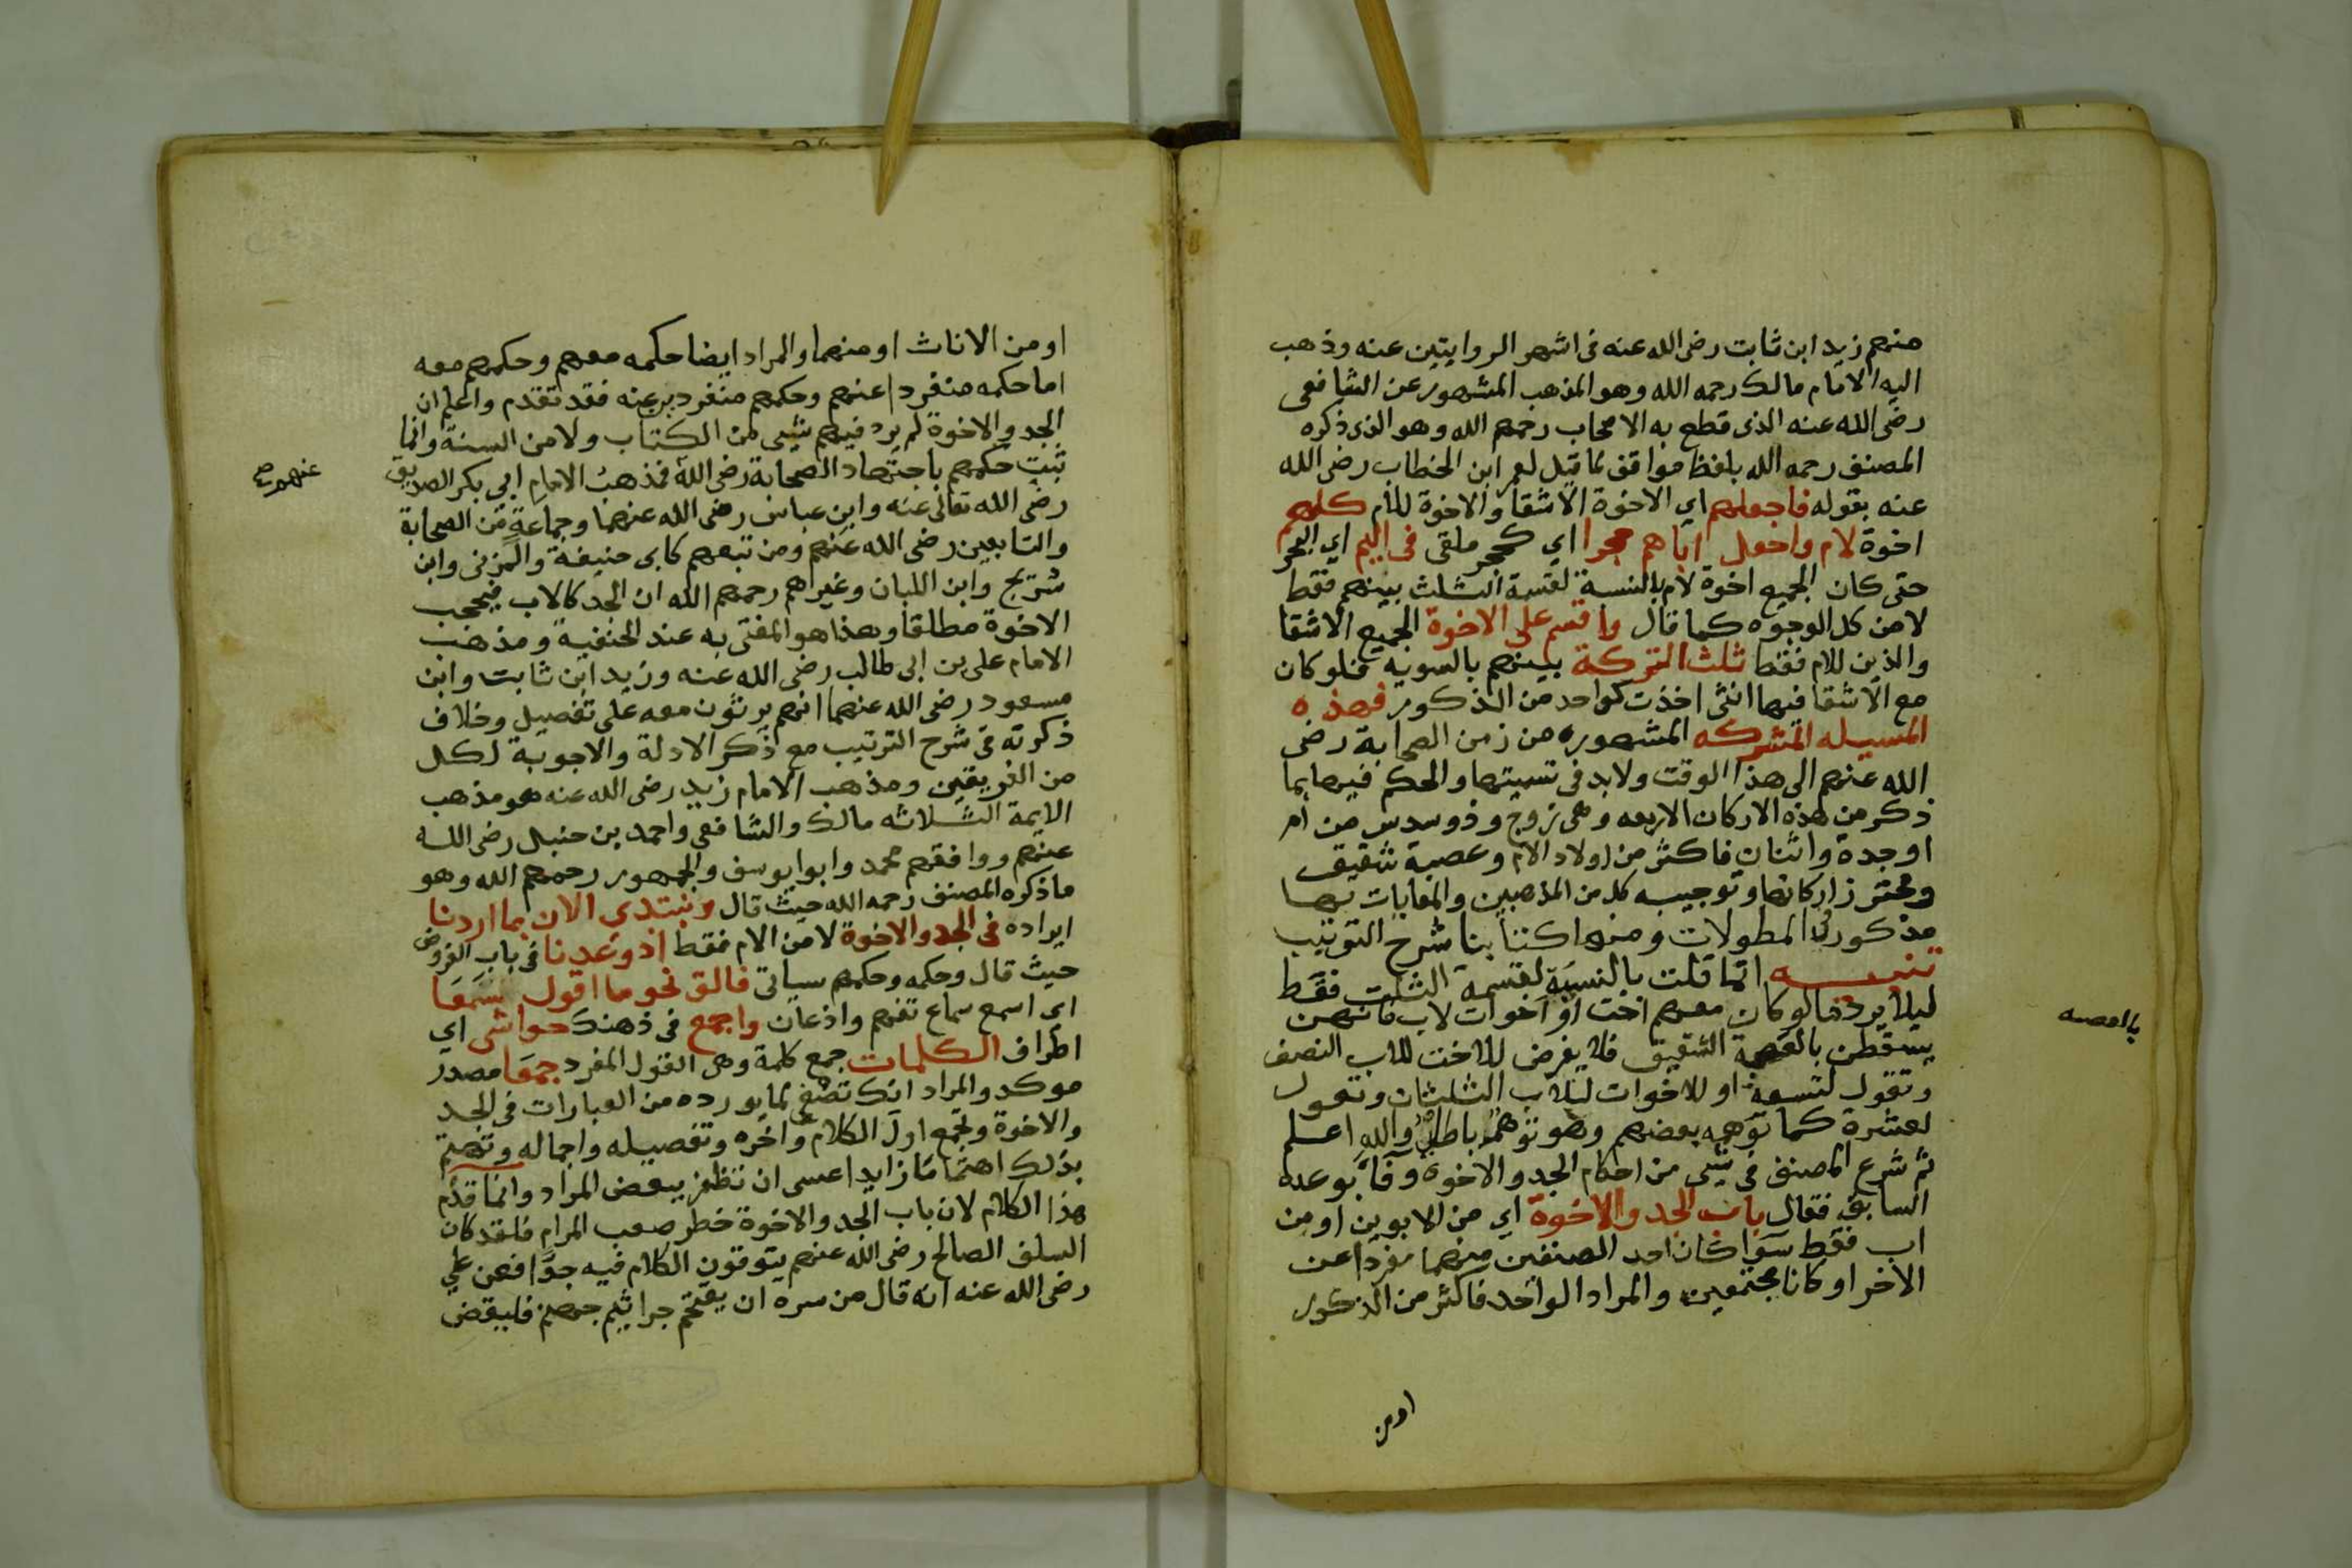 منهم زيد ابن ثابت رضي الله عنه في اشهر الروايتين عنه وذهب
اليه الامام مالك رحمه الله وهو المذهب المشهور عن الشافعي
رضي الله عنه الذي قطع به الاصحاب رحمهم الله وهو الذي ذكره
المصنف رحمه الله بلفظ موافق لما قيل لعمر ابن الخطاب رضي الله
عنه بقوله فاجعلهم اي الاخوة الاشقا والاخوة للام كلهم
اخوة لام واجعل اباهم حجرا اي كحجر ملقى في اليم اي البحر
حتى كان الجميع اخوة لام بالنسبة لقسمة الثلث بينهم فقط
لا من كل الوجوه كما قال واقسم على الاخوة الجميع الاشقا
والذين للام فقط ثلث التركة بينهم بالسوية فلو كان
مع الاشقا فيها انثى اخذت كواحد من الذكور فهذه
المسيله المشركه المشهوره من زمن الصحابة رضي
الله عنهم الى هذا الوقت ولابد في تسميتها والحكم فيها بما
ذكر من هذه الاركان الاربعه وهي زوج وذو سدس من ام
او جدة واثنان فاكثر من اولاد الام وعصبة شقيق
ومحترز اركانها وتوجيه كل من المذهبين والمعايات بها
مذكور في المطولات ومنها كتابنا شرح الترتيب
تنبيـــه انما قلت بالنسبة لقسمة الثلث فقط
ليلا يرد ما لو كان معهم اخت او اخوات لاب فانهن
يسقطن بالعصبة الشقيق فلا يفرض للاخت للاب النصف
وتقول لتسعة او للاخوات للاب الثلثان وتعول
لعشرة كما توهمه بعضهم وهو توهم باطل والله اعلم
ثم شرع المصنف في شي من احكام الجد والاخوه وفا بوعده
السابق فقال باب الجد والاخوة اي من الابوين او من
اب فقط سوا كان احد الصنفين منهما مفردا عن
الاخر او كانا مجتمعين والمراد الواحد فاكثر من الذكور
او من
او من الاناث او منهما والمراد ايضا حكمه معهم وحكمهم معه
اما حكمه منفردا عنهم وحكمهم منفردين عنه فقد تقدم واعلم ان
الجد والاخوة لم يرد فيهم شي من الكتاب ولا من السنة وانما
ثبت حكمهم باجتهاد الصحابة رضي الله فمذهب الامام ابي بكر الصديق
عنهم صح
رضي الله تعالى عنه وابن عباس رضي الله عنهما وجماعة من الصحابة
والتابعين رضي الله عنهم ومن تبعهم كابي حنيفة والمزني وابن
شريح وابن اللبان وغيرهم رحمهم الله ان الجد كالاب فيحجب
الاخوة مطلقا وهذا هو المفتى به عند الحنفية ومذهب
الامام علي بن ابي طالب رضي الله عنه وزيد ابن ثابت وابن
مسعود رضي الله عنهما انهم يرثون معه على تفصيل وخلاف
ذكرته في شرح الترتيب مع ذكر الادلة والاجوبة لكل
من الفريقين ومذهب الامام زيد رضي الله عنه هو مذهب
الايمة الثلاثه مالك والشافعي واحمد بن حنبل رضي الله
عنهم ووافقهم محمد وابوا يوسف والجمهور رحمهم الله وهو
ما ذكره المصنف رحمه الله حيث قال ونبتدي الان بما اردنا
ايراده في الجد والاخوة لا من الام فقط اذ وعدنا في باب الفروض
حيث قال وحكمه وحكمهم سياتي فالق نحو ما اقول السمعا
اي اسمع سماع تفهم واذعان واجمع في ذهنك حواشي اي
اطراف الكلمات جمع كلمة وهي القول المفرد جمعا مصدر
موكد والمراد انك تصغي لما يورده من العبارات في الجد
والاخوة وتجمع اول الكلام واخره وتفصيله واجماله وتهتم
بذلك اهتماما زايدا عسى ان تظفر ببعض المراد وانما قدم
هذا الكلام لان باب الجد والاخوة خطر صعب المرام فلقد كان
السلف الصالح رضي الله عنهم يتوقون الكلام فيه جدا فعن علي
رضي الله عنه انه قال من سره ان يقتحم جراثيم جهنم فليقض